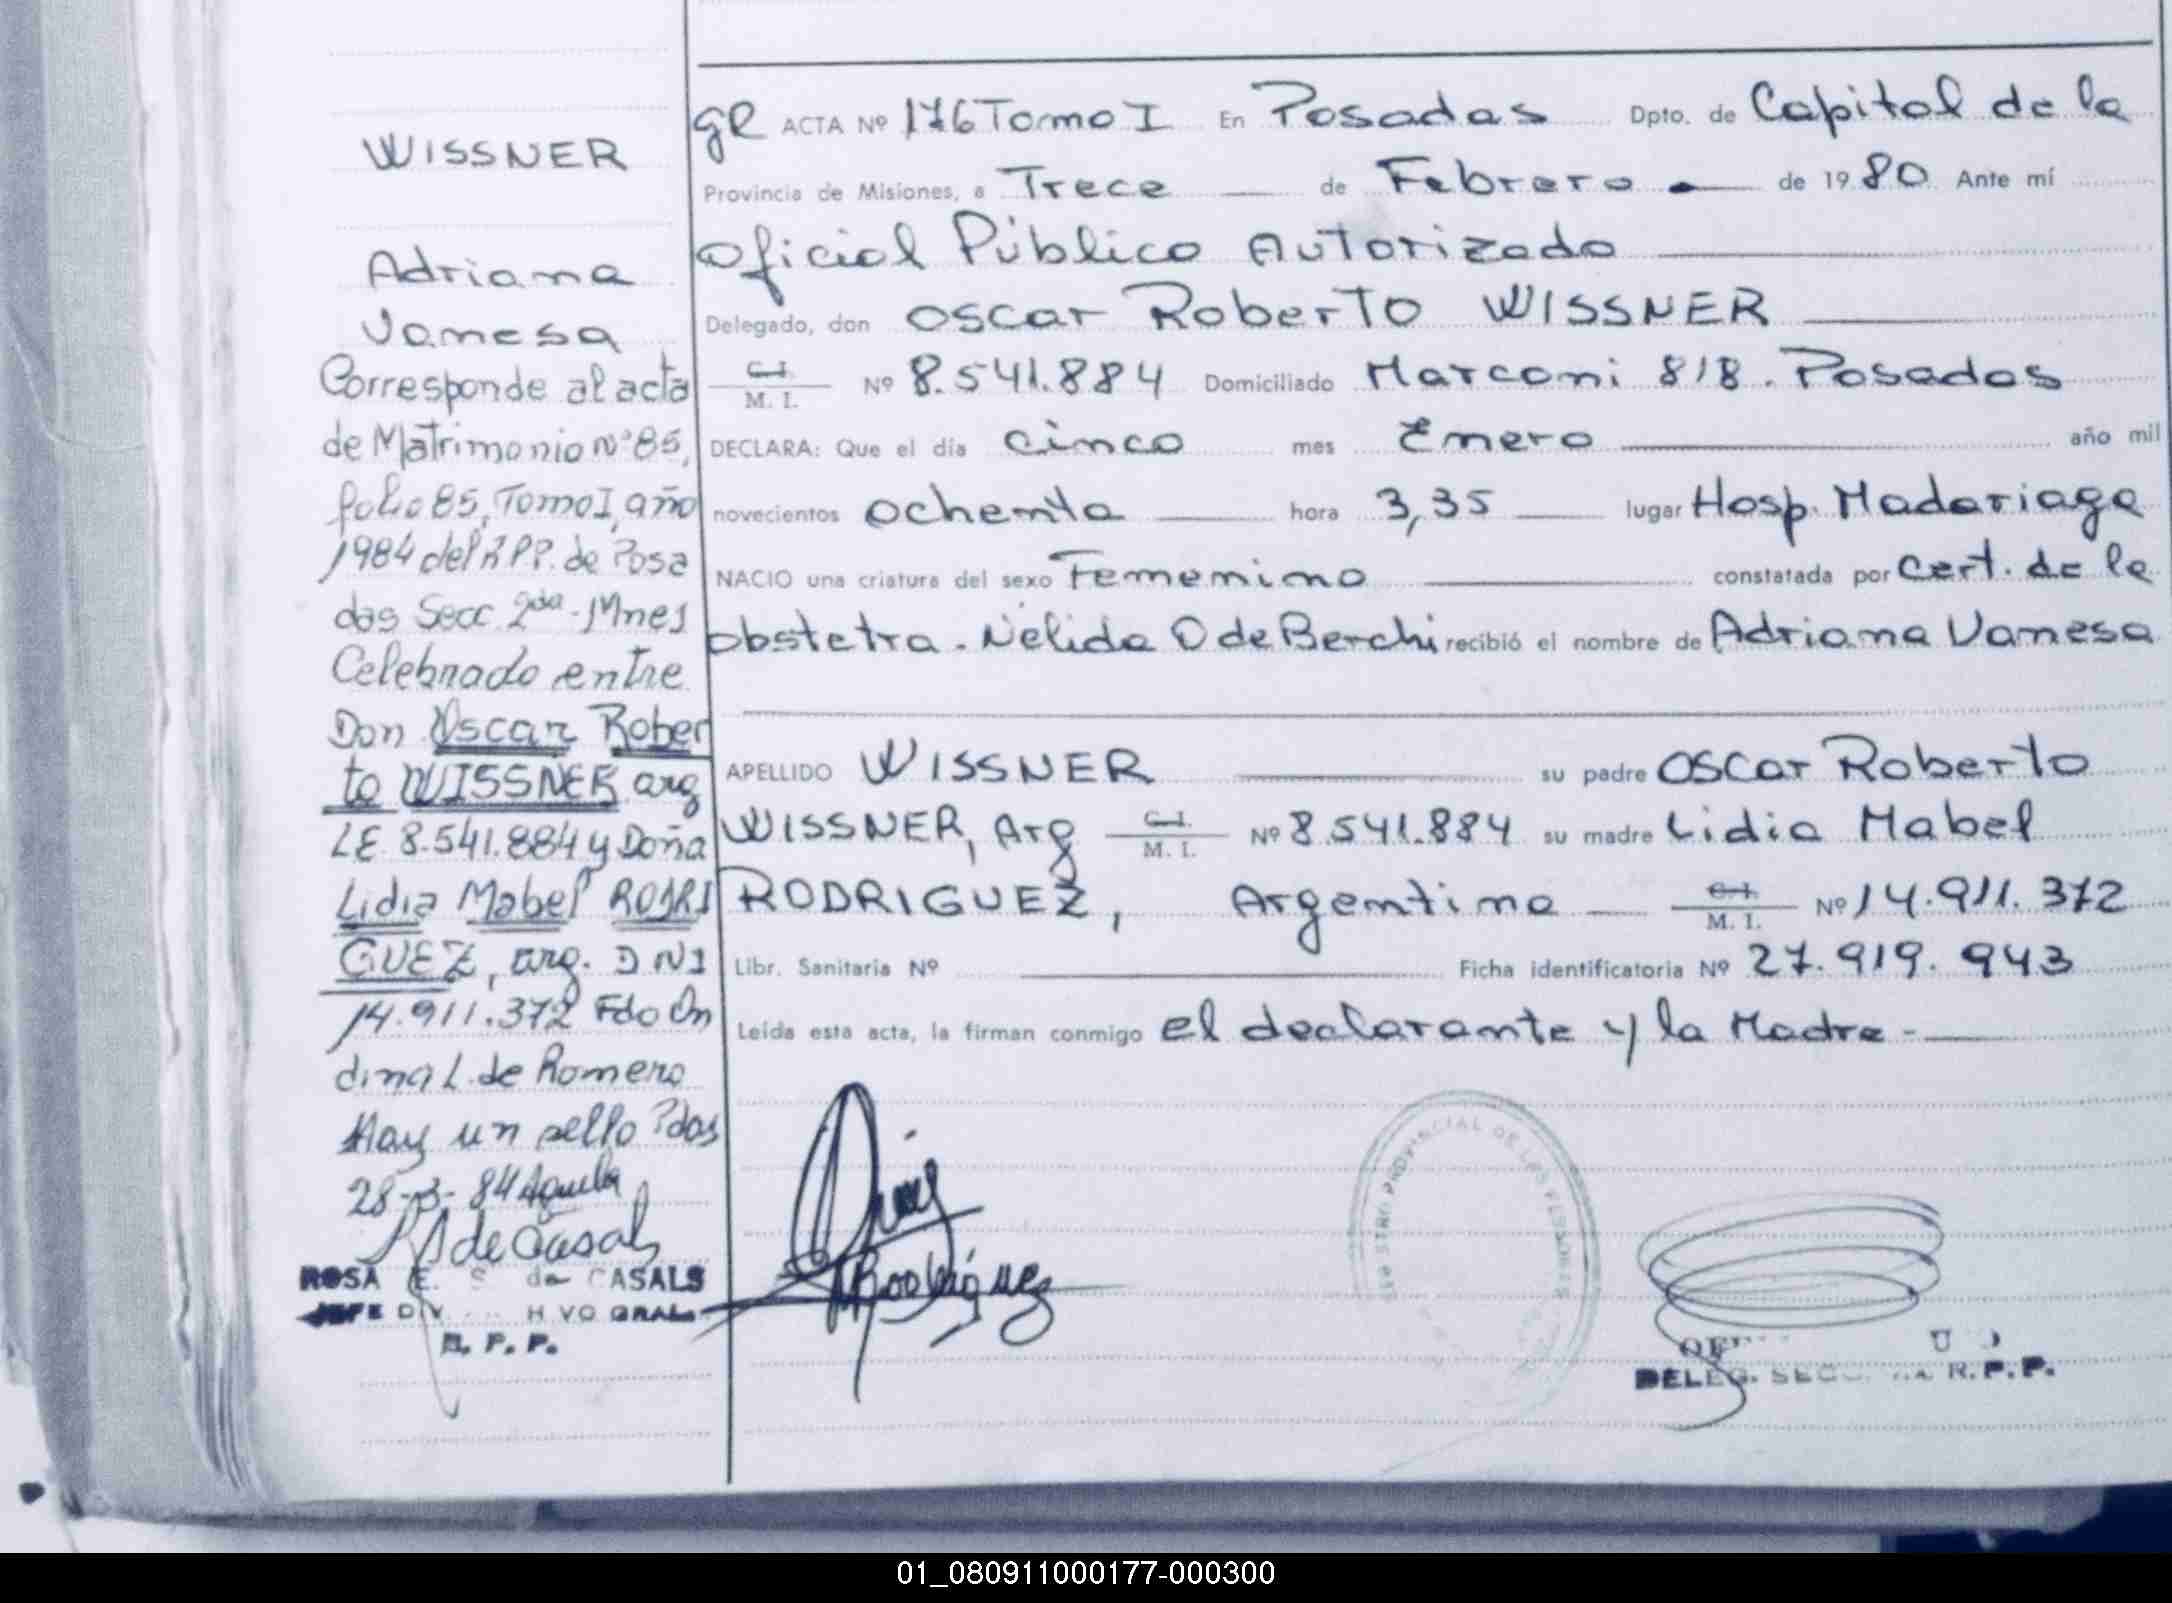 WISSNER
Adriana
Vanesa
Corresponde al acta
de Matrimonio Nº 85,
folio 85, Tomo I, año
1984 del R.P.P. de Posa
das Secc. 2da - Mnes
Celebrado entre
Don Oscar Rober
to WISSNER arg
LE 8.541.884 y Doña
Lidia Mabel RODRI
GUEZ, arg. DNI
14.911.372 Fdo On
dina L. de Romero
Hay un sello Pdas
28-3-84
S de Casals
ROSA E. S. de CASALS
JEFE DIV HIVO GRAL.
R. P. P.
gR ACTA Nº 176 Tomo I En Posadas Dpto. de Capital de la
Provincia de Misiones, a Trece de Febrero de 1980 Ante mí
Oficial Público Autorizado
Delegado, don Oscar Roberto WISSNER
C.I. M. I. Nº 8.541.884 Domiciliado Marconi 818. Posadas
DECLARA: Que el día cinco mes Enero año mil
novecientos ochenta hora 3,35 lugar Hosp. Madariaga
NACIO una criatura del sexo Femenino constatada por Cert. de la
obstetra. Nélida O de Berchi recibió el nombre de Adriana Vanesa
APELLIDO WISSNER su padre Oscar Roberto
WISSNER, Arg C.I. M. I. Nº 8.541.884 su madre Lidia Mabel
RODRIGUEZ, Argentina C.I. M. I. Nº 14.911.372
Libr. Sanitaria Nº Ficha identificatoria Nº 27.919.943
Leída esta acta, la firman conmigo el declarante y la Madre -
Rodriguez
STRO PROVINCIAL DE LAS PERSONAS
DELEG. SEC R.P.P.
01_080911000177-000300